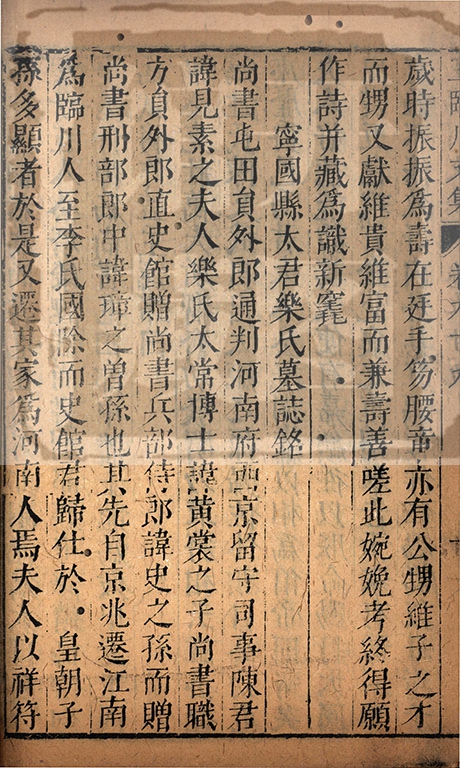 王臨川文集 卷九十九
歲時振振爲壽在廷手笏腰章亦有公甥維子之才
而甥又獻維貴維富而兼壽善嗟此婉娩考終得願
作詩并藏爲識新竁
寧國縣太君樂氏墓誌銘
尚書屯田員外郎通判河南府西京留守司事陳君
諱見素之夫人樂氏太常博士諱黃裳之子尚書職
方員外郎直史館贈尚書兵部侍郎諱史之孫而贈
尚書刑部郎中諱璋之曾孫也其先自京兆遷江南
爲臨川人至李氏國除而史館君歸仕於 皇朝子
孫多顯者於是又遷其家爲河南人焉夫人以祥符